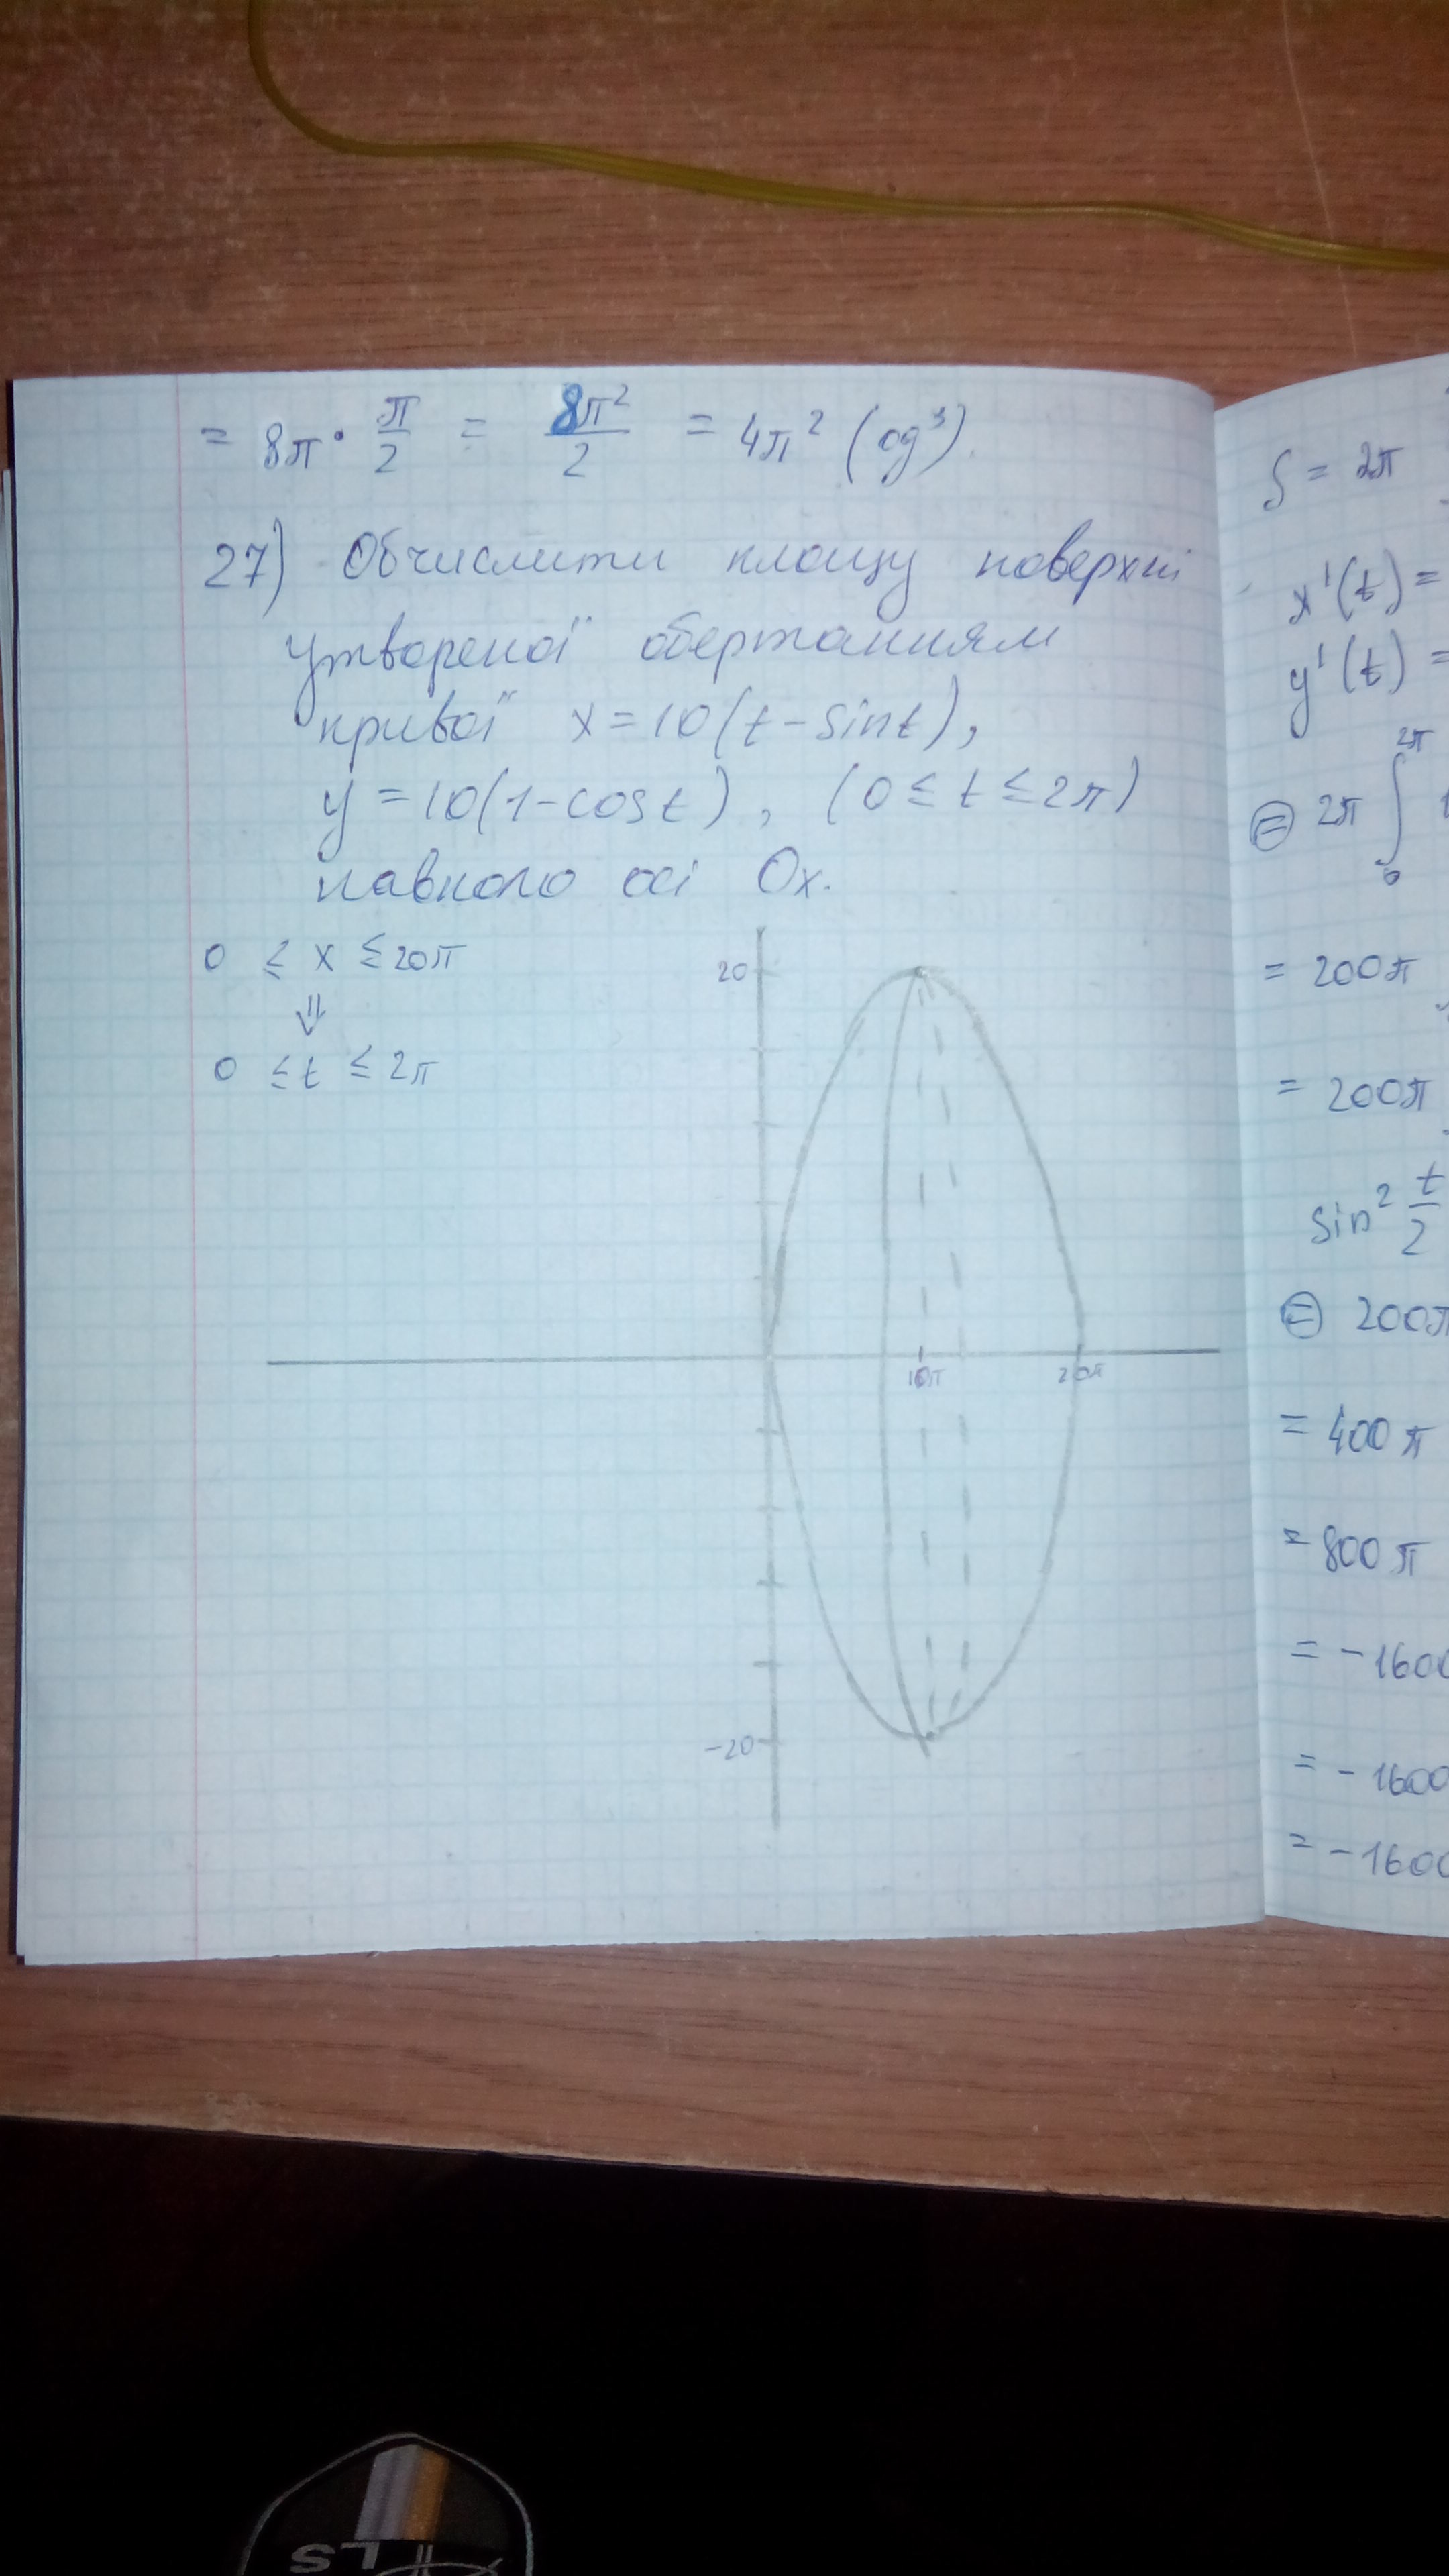 = 8π · π/2 = 8π²/2 = 4π² (од³).
27) Обчислити площу поверхні
утвореної обертанням
кривої x = 10(t - sint),
y = 10(1 - cost), (0 ≤ t ≤ 2π)
навколо осі Ox.
0 ≤ x ≤ 20π
⇓
0 ≤ t ≤ 2π
20
10π
20π
-20
S = 2π
x'(t) =
y'(t) =
⊜ 2π ∫₀²π
= 200π
= 200π
sin² t/2
⊜ 200π
= 400π
= 800π
= -1600
= -1600
= -1600
LS